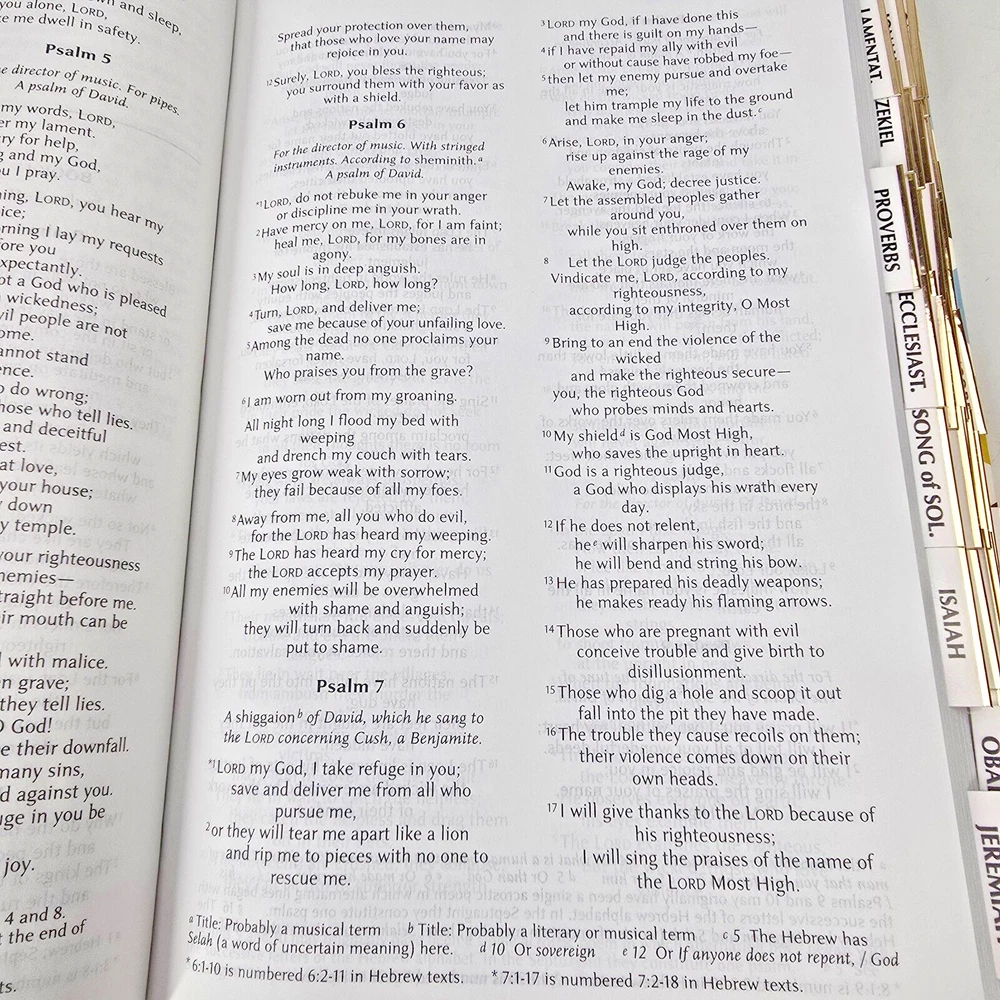 you alone, LORD,
me dwell in safety.
Psalm 5
the director of music. For pipes.
A psalm of David.
my words, LORD,
my lament.
cry for help,
and my God,
I pray.
LORD, you hear my
I lay my requests
you
expectantly.
a God who is pleased
wickedness;
people are not
cannot stand
do wrong;
those who tell lies.
and deceitful
love,
your house;
down
temple.
your righteousness
enemies—
straight before me.
mouth can be
with malice.
grave;
they tell lies.
O God!
their downfall.
many sins,
against you.
in you be
joy.
4 and 8.
the end of
Spread your protection over them,
that those who love your name may
rejoice in you.
12 Surely, LORD, you bless the righteous;
you surround them with your favor as
with a shield.
Psalm 6
For the director of music. With stringed
instruments. According to sheminith. a
A psalm of David.
*1 LORD, do not rebuke me in your anger
or discipline me in your wrath.
2 Have mercy on me, LORD, for I am faint;
heal me, LORD, for my bones are in
agony.
3 My soul is in deep anguish.
How long, LORD, how long?
4 Turn, LORD, and deliver me;
save me because of your unfailing love.
5 Among the dead no one proclaims your
name.
Who praises you from the grave?
6 I am worn out from my groaning.
All night long I flood my bed with
weeping
and drench my couch with tears.
7 My eyes grow weak with sorrow;
they fail because of all my foes.
8 Away from me, all you who do evil,
for the LORD has heard my weeping.
9 The LORD has heard my cry for mercy;
the LORD accepts my prayer.
10 All my enemies will be overwhelmed
with shame and anguish;
they will turn back and suddenly be
put to shame.
Psalm 7
A shiggaion b of David, which he sang to
the LORD concerning Cush, a Benjamite.
*1 LORD my God, I take refuge in you;
save and deliver me from all who
pursue me,
2 or they will tear me apart like a lion
and rip me to pieces with no one to
rescue me.
3 LORD my God, if I have done this
and there is guilt on my hands—
4 if I have repaid my ally with evil
or without cause have robbed my foe—
5 then let my enemy pursue and overtake
me;
let him trample my life to the ground
and make me sleep in the dust. c
6 Arise, LORD, in your anger;
rise up against the rage of my
enemies.
Awake, my God; decree justice.
7 Let the assembled peoples gather
around you,
while you sit enthroned over them on
high.
8 Let the LORD judge the peoples.
Vindicate me, LORD, according to my
righteousness,
according to my integrity, O Most
High.
9 Bring to an end the violence of the
wicked
and make the righteous secure—
you, the righteous God
who probes minds and hearts.
10 My shield d is God Most High,
who saves the upright in heart.
11 God is a righteous judge,
a God who displays his wrath every
day.
12 If he does not relent,
he e will sharpen his sword;
he will bend and string his bow.
13 He has prepared his deadly weapons;
he makes ready his flaming arrows.
14 Those who are pregnant with evil
conceive trouble and give birth to
disillusionment.
15 Those who dig a hole and scoop it out
fall into the pit they have made.
16 The trouble they cause recoils on them;
their violence comes down on their
own heads.
17 I will give thanks to the LORD because of
his righteousness;
I will sing the praises of the name of
the LORD Most High.
a Title: Probably a musical term b Title: Probably a literary or musical term c 5 The Hebrew has
Selah (a word of uncertain meaning) here. d 10 Or sovereign e 12 Or If anyone does not repent, / God
*6:1-10 is numbered 6:2-11 in Hebrew texts. *7:1-17 is numbered 7:2-18 in Hebrew texts.
LAMENTAT.
ZEKIEL
PROVERBS
ECCLESIAST.
SONG of SOL.
ISAIAH
OBA
JEREMIAH